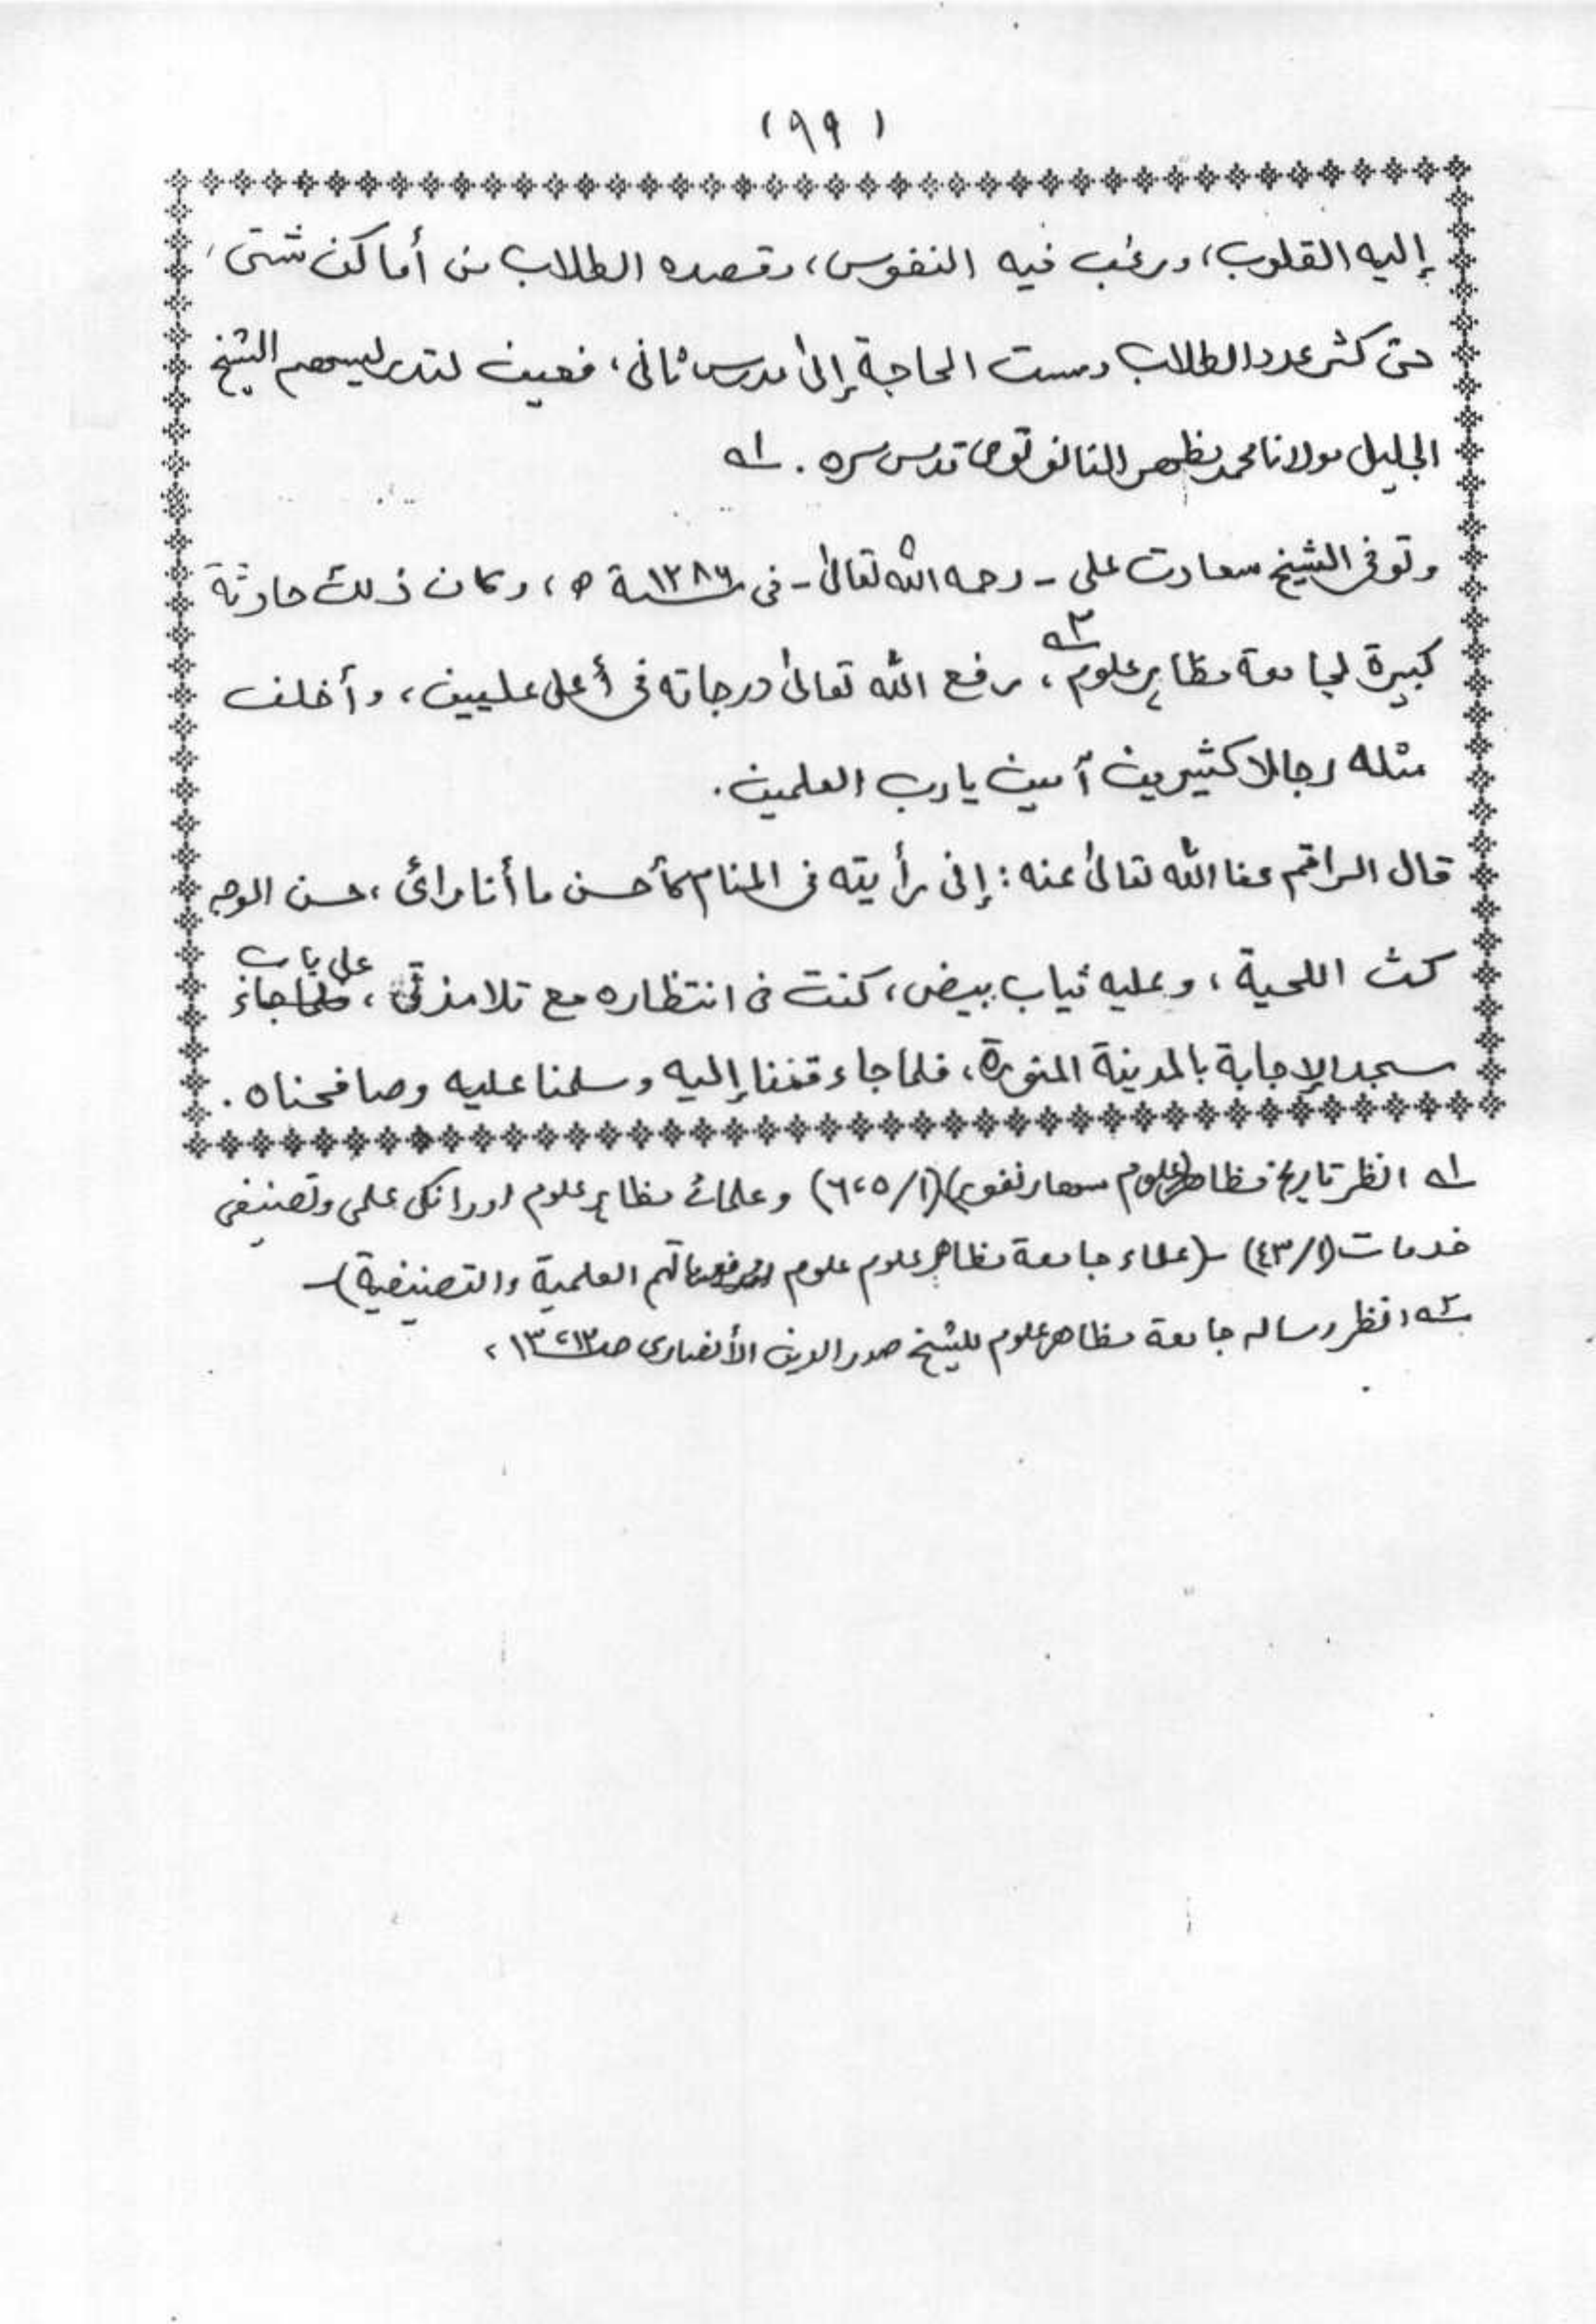 (٩٩)
إليه القلوب، ورغب فيه النفوس، وقصده الطلاب من أماكن شتى،
حتى كثر عدد الطلاب ومست الحاجة إلى مدرس ثانى، فعين لتدريسهم الشيخ
الجليل مولانا محمد مظهر النانوتوى قدس سره . ١ه
وتوفى الشيخ سعادت على - رحمه الله تعالىٰ - فى ١٢٨٦سنة ه ، وكان ذلك حادثة
كبيرة لجامعة مظاہر علوم ٢ه، رفع الله تعالىٰ درجاته فى أعلى عليين، وأخلف
مثله رجالا كثيرين آمين يارب العلمين.
قال الراقم عفا الله تعالىٰ عنه : إنى رأيته فى المنام كأحسن ما أنا رائى ، حسن الوجه
كث اللحية ، وعليه ثياب بيض، كنت فى انتظاره مع تلامذتى ، على باب
مسجد الإجابة بالمدينة المنورة، فلما جاء قمنا إليه وسلمنا عليه وصافحناه .
١ه انظر تاريخ مظاهر علوم سهارنفور (١/ ٥، ٦) وعلمائے مظاہر علوم اور انكى علمى وتصنيفى
خدمات (١/ ٤٣) - (علماء جامعة مظاهر علوم علوم العلمية والتصنيفية) -
٢ه انظر رساله جامعة مظاهر علوم للشيخ صدر الدين الأنصارى صـ١٢، ١٣ ،